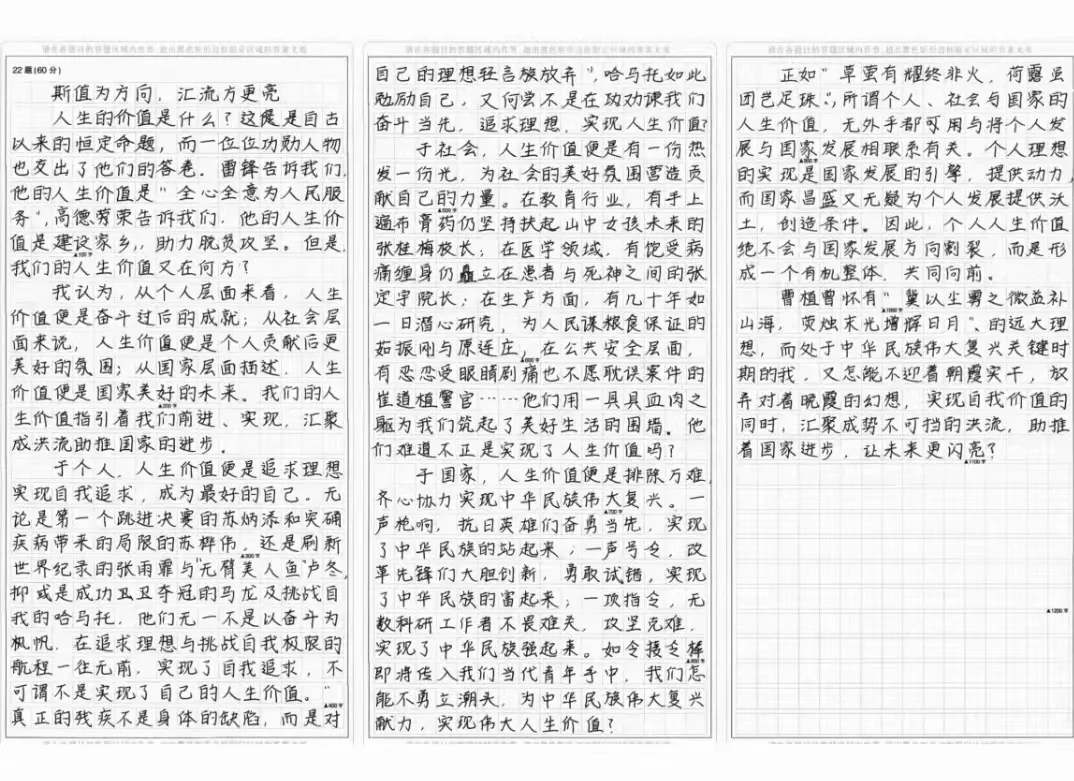 22题(60分)
斯值为方向,汇流方更亮
人生的价值是什么?这便是自古
以来的恒定命题,而一位位功勋人物
也交出了他们的答卷。雷锋告诉我们,
他的人生价值是"全心全意为人民服
务",高德荣告诉我们,他的人生价
值是建设家乡,助力脱贫攻坚。但是,
我们的人生价值又在何方?
我认为,从个人层面来看,人生
价值便是奋斗过后的成就;从社会层
面来说,人生价值便是个人贡献后更
美好的氛围;从国家层面描述,人生
价值便是国家美好的未来。我们的人
生价值指引着我们前进、实现,汇聚
成洪流助推国家的进步。
于个人,人生价值便是追求理想
实现自我追求,成为最好的自己。无
论是第一个跳进决赛的苏炳添和突破
疾病带来的局限的苏桦伟,还是刷新
世界纪录的张雨霏与"无臂美人鱼"卢冬,
抑或是成功卫卫夺冠的马龙及挑战自
我的哈马托,他们无一不是以奋斗为
帆,在追求理想与挑战自我极限的
航程一往无前,实现了自我追求,不
可谓不是实现了自己的人生价值。"
真正的残疾不是身体的缺陷,而是对
自己的理想轻言放弃",哈马托如此
勉励自己,又何尝不是在劝课我们
奋斗当先,追求理想,实现人生价值?
于社会,人生价值便是有一份热
发一份光,为社会的美好氛围营造贡
献自己的力量。在教育行业,有手上
遍布膏药仍坚持扶起山中女孩未来的
张桂梅校长;在医学领域,有饱受病
痛缠身仍矗立在患者与死神之间的张
定宇院长;在生产方面,有几十年如
一日潜心研究,为人民谋粮食保证的
茹振刚与原连庄,在公共安全层面,
有忍忍受眼睛剧痛也不愿耽误案件的
崔道植警官……他们用一具具血肉之
躯为我们筑起了美好生活的围墙。他
们难道不正是实现了人生价值吗?
于国家,人生价值便是排除万难,
齐心协力实现中华民族伟大复兴。一
声枪响,抗日英雄们奋勇当先,实现
了中华民族的站起来;一声号令,改
革先锋们大胆创新,勇敢试错,实现
了中华民族的富起来;一项指令,无
数科研工作者不畏难关,攻坚克难,
实现了中华民族强起来。如令接令棒
即将传入我们当代青年手中,我们怎
能不勇立潮头,为中华民族伟大复兴
献力,实现伟大人生价值?
正如"草萤有耀终非火,荷露虽
团岂足珠",所谓个人、社会与国家的
人生价值,无外乎都可用与将个人发
展与国家发展相联系有关。个人理想
的实现是国家发展的引擎,提供动力,
而国家昌盛又无疑为个人发展提供沃
土,创造条件。因此,个人人生价值
绝不会与国家发展方向割裂,而是形
成一个有机整体,共同向前。
曹植曾怀有"冀以尘雾之微益补
山海,荧烛末光增辉日月"、的远大理
想,而处于中华民族伟大复兴关键时
期的我,又怎能不迎着朝霞实干,放
弃对着晚霞的幻想,实现自我价值的
同时,汇聚成势不可挡的洪流,助推
着国家进步,让未来更闪亮?